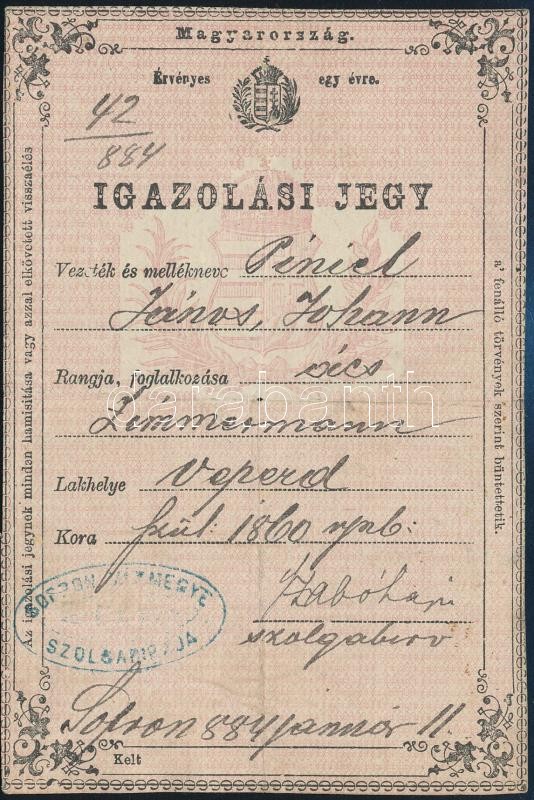 Magyarország.
Érvényes egy évre.
42
884
IGAZOLÁSI JEGY
Vezeték és mellékneve Piniel
János, Johann
Rangja, foglalkozása ács
Zimmermann
Lakhelye Veperd
Kora szül: 1860
Szabó
szolgabiró
SZOLGABIRÁJA
Sopron 884 január 11.
Kelt
Az igazolási jegynek minden hamisítása vagy azzal elkövetett visszaélés
a' fenálló törvények szerint büntettetik.
darabanth